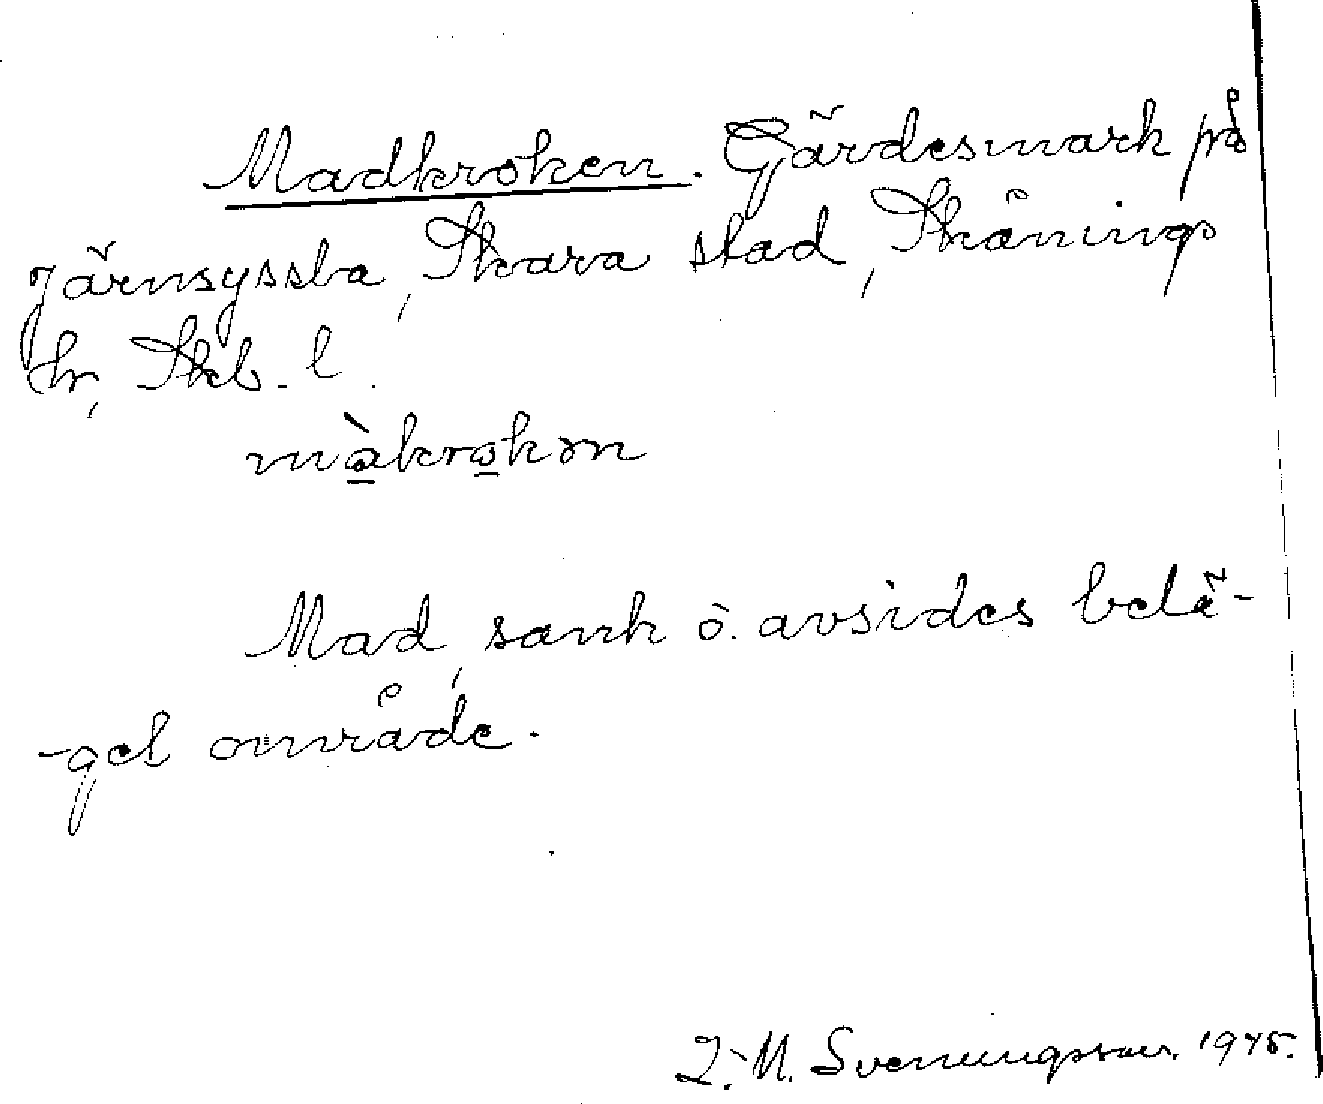 Madkroken. Gärdesmark på
Järnsyssla, Skara stad, Skånings
hr, Skb. l.
màkrokən
Mad, sank o. avsides belä-
-get område.
I. M. Svenningsson. 1945.